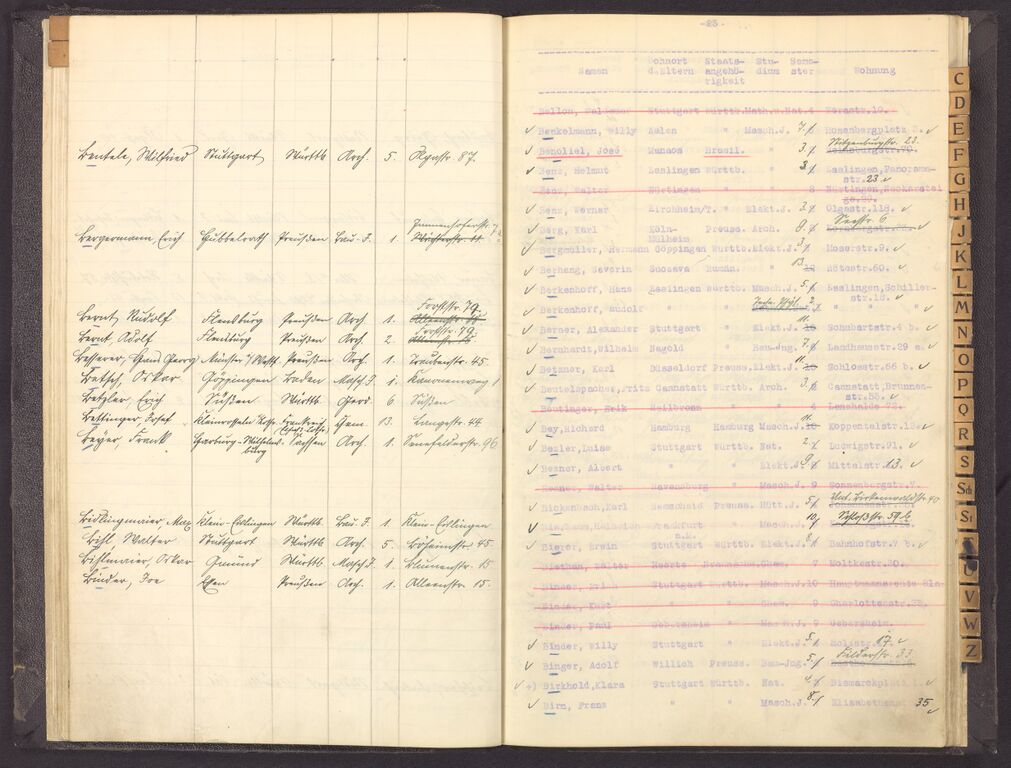 Bentele, Wilfried Stuttgart Württb. Arch. 5. Rgastr. 87.
Bergermann, Erich Hubbelrath Preußen Bau-J. 1.
Berndt, Rudolf Flensburg Preußen Arch. 1. Forststr. 79.
Berndt, Adolf Flensburg Preußen Arch. 2. Forststr. 79.
Besserer, Hans Georg Münster i/Westf. Preußen Arch. 1. Traubenstr. 45
Betsch, Oskar Göppingen Baden Masch.J. 1. Kanonenweg 1
Betzler, Erich Süßen Württb. Geod. 6 Süßen
Bettinger, Josef Kleinrosseln Frankreich Chem. 13. Langestr. 44
Beyer, Frank Harburg-Wilhelmsburg Sachsen Arch. 1. Senefelderstr. 96
Bidlingmaier, Max Klein-Eislingen Württb. Bau-J. 1. Klein-Eislingen
Bihl, Walter Stuttgart Württb. Arch. 5. Böheimstr. 45
Bihlmaier, Oskar Gmünd Württb. Masch.J. 1. Blumenstr. 15
Binder, Ivo Essen Preußen Arch. 1. Alleenstr. 15.
-23-
Namen Wohnort d.Eltern Staatsangehörigkeit Studium Semester Wohnung
Stuttgart Württb. Math.u.Nat. 4 Werastr.10.
Benkelmann, Willy Aalen " Masch.J. 7. Rosenbergplatz 2.
Benoliel, José Manaos Brasil. " 3. Sitzenburgstr. 23.
Benz, Helmut Esslingen Württb. " 3. Esslingen, Panoramastr. 23
Benz, Walter Nürtingen " " 8 Nürtingen, Neckarsteige.
Benz, Werner Kirchheim/T. " Elekt.J. 3. Olgastr.118.
Berg, Karl Köln-Mülheim Preuss. Arch. 8. Seestr. 6
Bergmüller, Hermann Göppingen Württb. Elekt.J. 3. Moserstr.9.
Berhang, Severin Suceava Rumän. " 13. Rötestr.60.
Berkenhoff, Hans Esslingen Württb. Masch.J. 5. Esslingen, Schillerstr.18.
Berkenhoff, Rudolf " " 2.
Berner, Alexander Stuttgart " Elekt.J. 11. Schubartstr.4 b.
Bernhardt, Wilhelm Nagold " Bau-Jng. 7. Landhausstr.29 a.
Betzner, Karl Düsseldorf Preuss. Elekt.J. 11. Schlosstr.66 b.
Beutelspacher, Fritz Cannstatt Württb. Arch. 3. Cannstatt, Brunnenstr.
Beutinger, Erik Heilbronn " " 4 Lenzhalde 72.
Bey, Richard Hamburg Hamburg Masch.J. 11. Koppentalstr.13.
Bezler, Luise Stuttgart Württb. Nat. 2. Ludwigstr.91.
Bezner, Albert " " Elekt.J. 9. Mittelstr. 13.
Bezner, Walter Ravensburg " Masch.J. 9 Sonnenbergstr.7.
Bickenbach, Karl Remscheid Preuss. Hütt.J. 5. Unt. Birkenwaldstr. 40
Frankfurt a.M. " Masch. Schloßstr. 59 b.
Bierer, Erwin Stuttgart Württb. Elekt.J. 8. Bahnhofstr.7 b.
Walter Braunschw. Chem. 7 Moltkestr.30.
Binder, Stuttgart Württb. Masch.J. 10
Binder, Kurt " " Chem. 9 Charlottenstr.
Binder, Paul Gebersheim " Masch.J. 9 Gebersheim.
Binder, Willy Stuttgart " Elekt.J. 5. 17.
Binger, Adolf Willich Preuss. Bau-Jng. 5. Filderstr. 33.
Birkhold, Klara Stuttgart Württb. Nat. Bismarckplatz 1.
Birn, Franz " " Masch.J. 8. 35
C
D
E
F
G
H
J
K
L
M
N
O
P
Q
R
S
Sch
St
U
V
W
Z